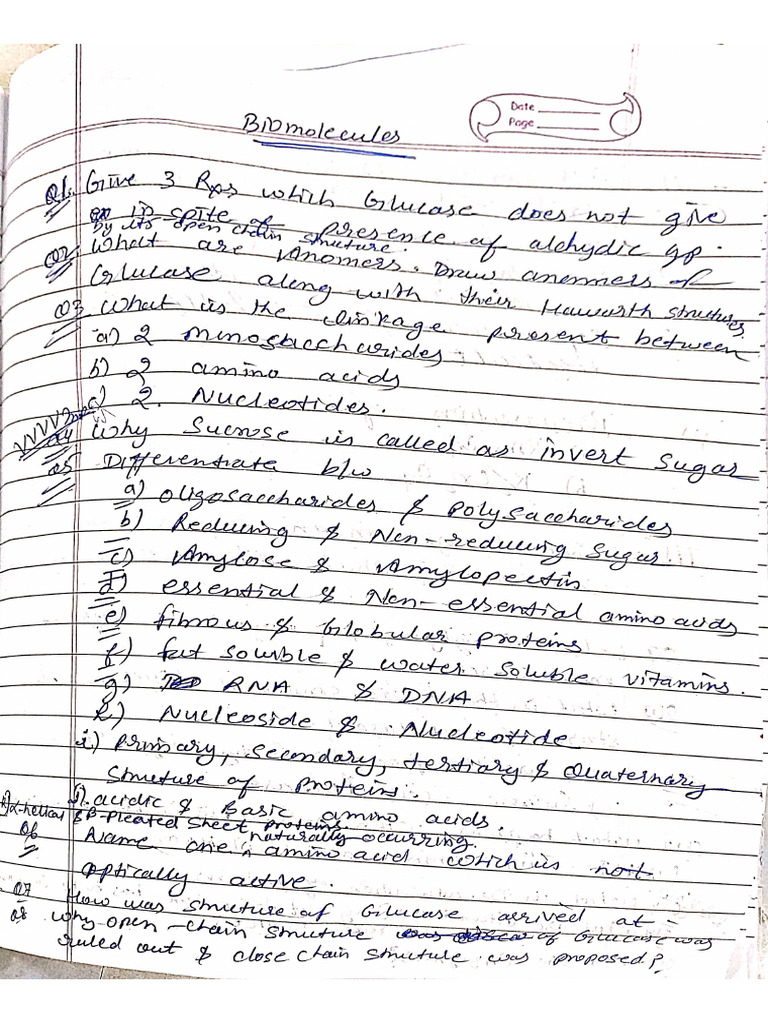 Date
Page
Biomolecules
Q1. Give 3 Rxs which Glucose does not give
in spite of presence of aldehydic gp.
by its open chain structure.
Q2 What are Anomers. Draw anomers of
Glucose along with their Haworth structures.
Q3 What is the linkage present between
a) 2 monosaccharides
b) 2 amino acids
c) 2. Nucleotides.
Q4 Why Sucrose is called as invert sugar
Q5 Differentiate b/w
a) oligosaccharides & polysaccharides
b) Reducing & Non-reducing sugar.
c) Amylose & Amylopectin
d) essential & Non-essential amino acids
e) fibrous & Globular proteins
f) fat soluble & water soluble vitamins.
g) RNA & DNA
h) Nucleoside & Nucleotide
i) primary, secondary, tertiary & Quaternary
structure of proteins.
j) acidic & Basic amino acids.
k) α-helical & β-pleated sheet proteins.
Q6 Name one naturally occurring amino acid which is not
optically active.
Q7 How was structure of Glucose arrived at -
Q8 Why open-chain structure of Glucose was
ruled out & close chain structure was proposed?